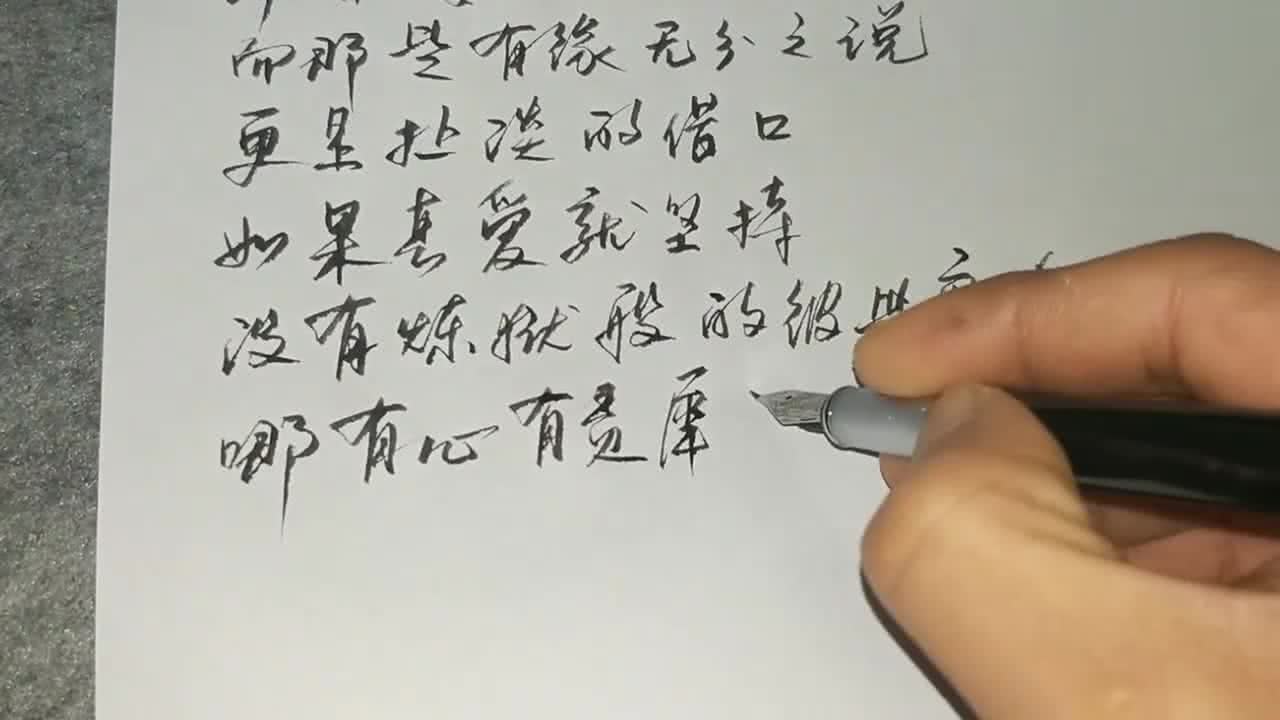 而那些有缘无分之说
更是扯淡的借口
如果真爱就坚持
没有炼狱般的彼此
哪有心有灵犀